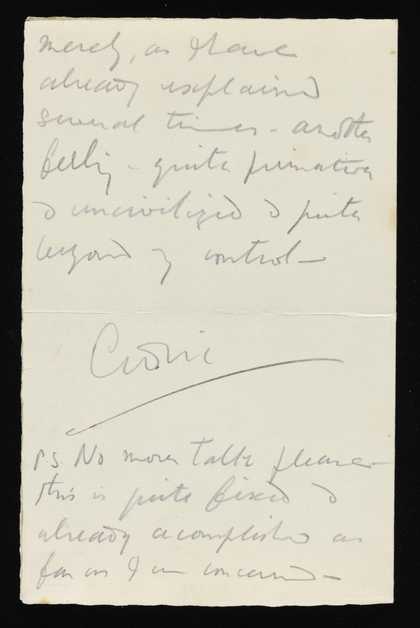 merely, as I have
already explained
several times - another
feeling - quite primative
& uncivilized & quite
beyond my control -
PS No more talk please -
this is quite fixed &
already acomplished as
far as I am concerned -